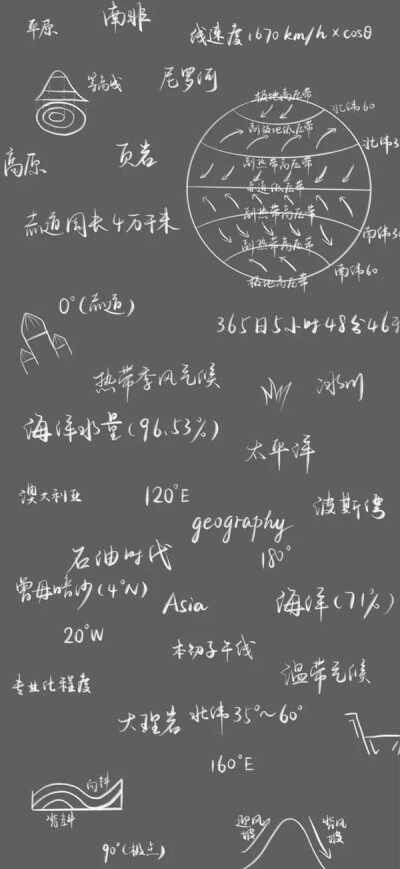 平原
南非
线速度1670km/h×cosθ
等高线
尼罗河
极地高压带
北纬60
副极地低压带
北纬3
高原
页岩
副热带高压带
赤道低压带
赤道周长4万千米
副热带高压带
南纬30
副热带高压带
南纬60
极地高压带
0°(赤道)
365日5小时48分46
热带季风气候
冰川
海洋水量(96.53%)
太平洋
澳大利亚
120°E
波斯湾
geography
石油时代
180°
曾母暗沙(4°N)
Asia
海洋(71%)
20°W
本初子午线
温带气候
专业化程度
大理岩
北纬35°~60°
160°E
向斜
背斜
迎风坡
背风坡
90°(极点)